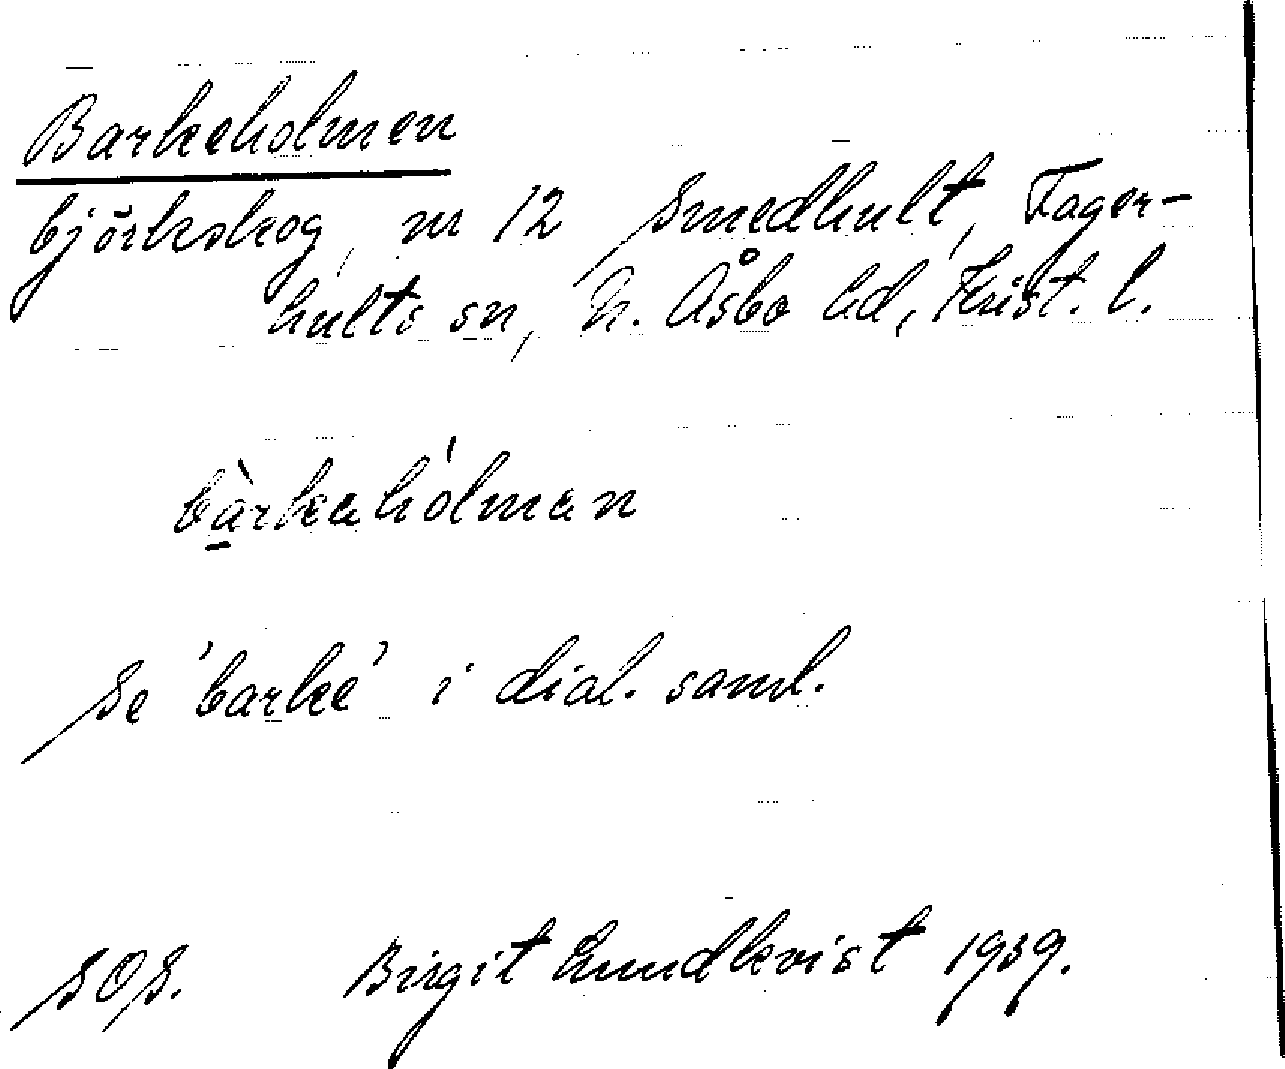 Barkeholmen
björkskog, nr 12 Smedhult, Fager-
hults sn, N. Åsbo hd, Krist. l.
bàrkahólman
Se 'barke' i dial. saml.
SOS. Birgit Lundkvist 1939.